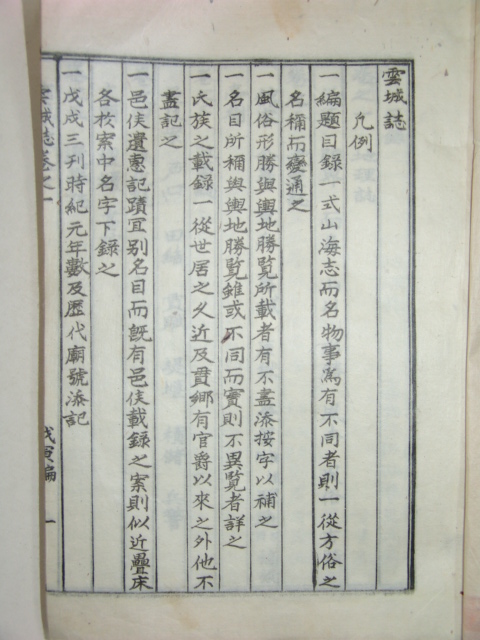 雲城誌
凡例
一編題目錄一式山海志而名物事爲有不同者則一從方俗之
名稱而變通之
一風俗形勝與輿地勝覽所載者有不盡添按字以補之
一名目所稱與輿地勝覽雖或不同而實則不異覽者詳之
一氏族之載錄一從世居之久近及貫鄕有官爵以來之外他不
盡記之
一邑侯遺惠記蹟宜別名目而旣有邑侯載錄之案則似近疊床
各枚案中名字下錄之
一戊戌三刊時紀元年數及歷代廟號添記
雲城誌卷之一
戊寅編
一